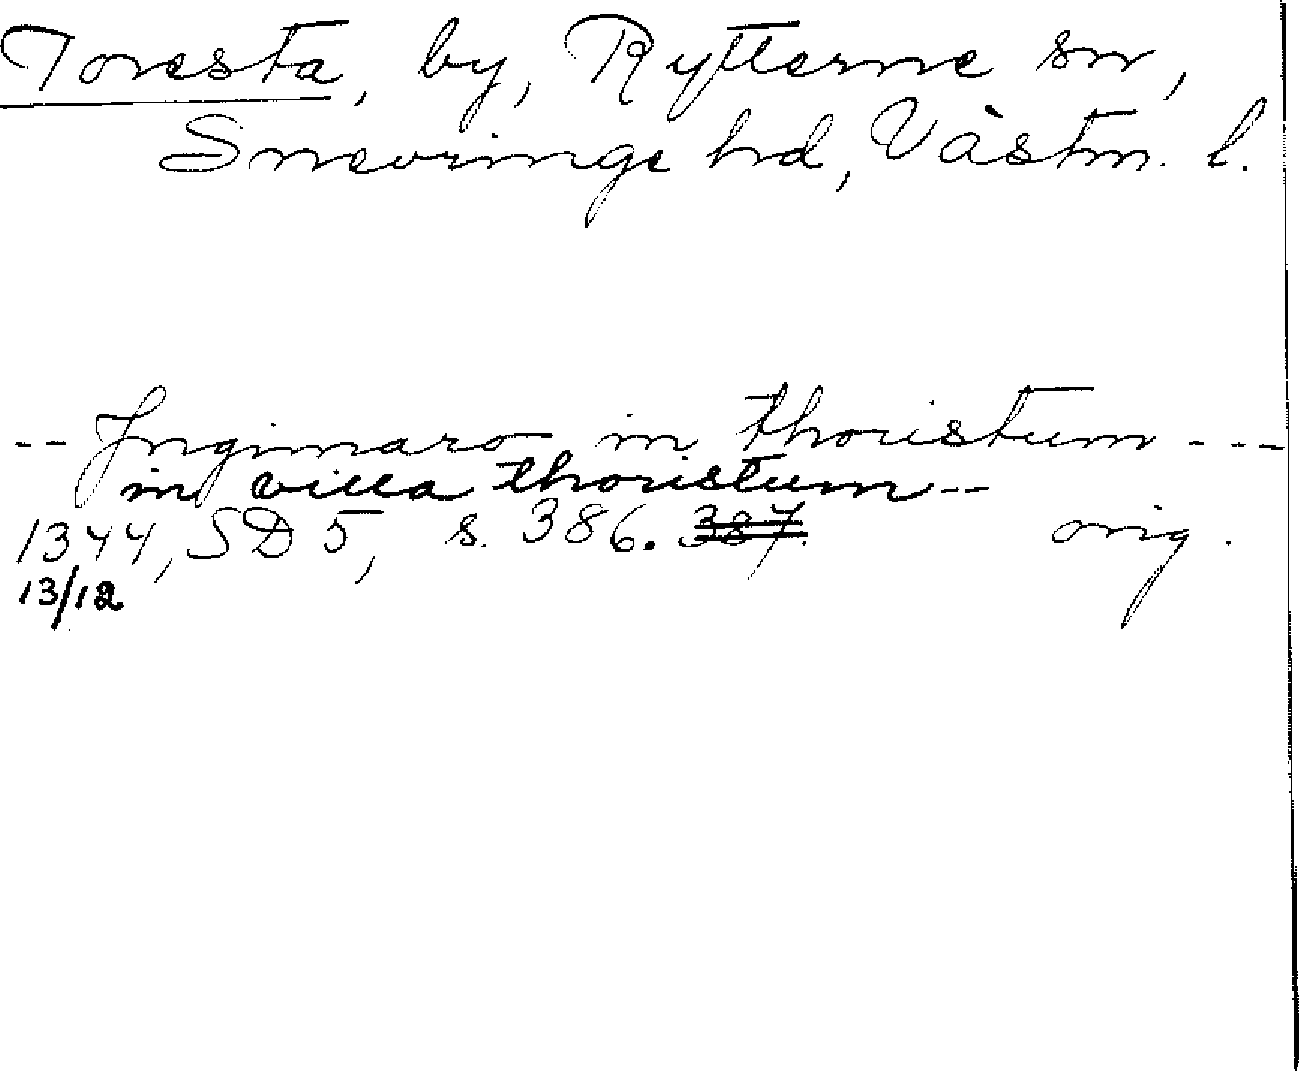 Toresta, by, Rytterne sn,
Snevringe hd, Västm. l.
-- Ingimaro in thoristum ---
in villa thoristum --
1344, SD 5, s. 386. 387. orig.
13/12